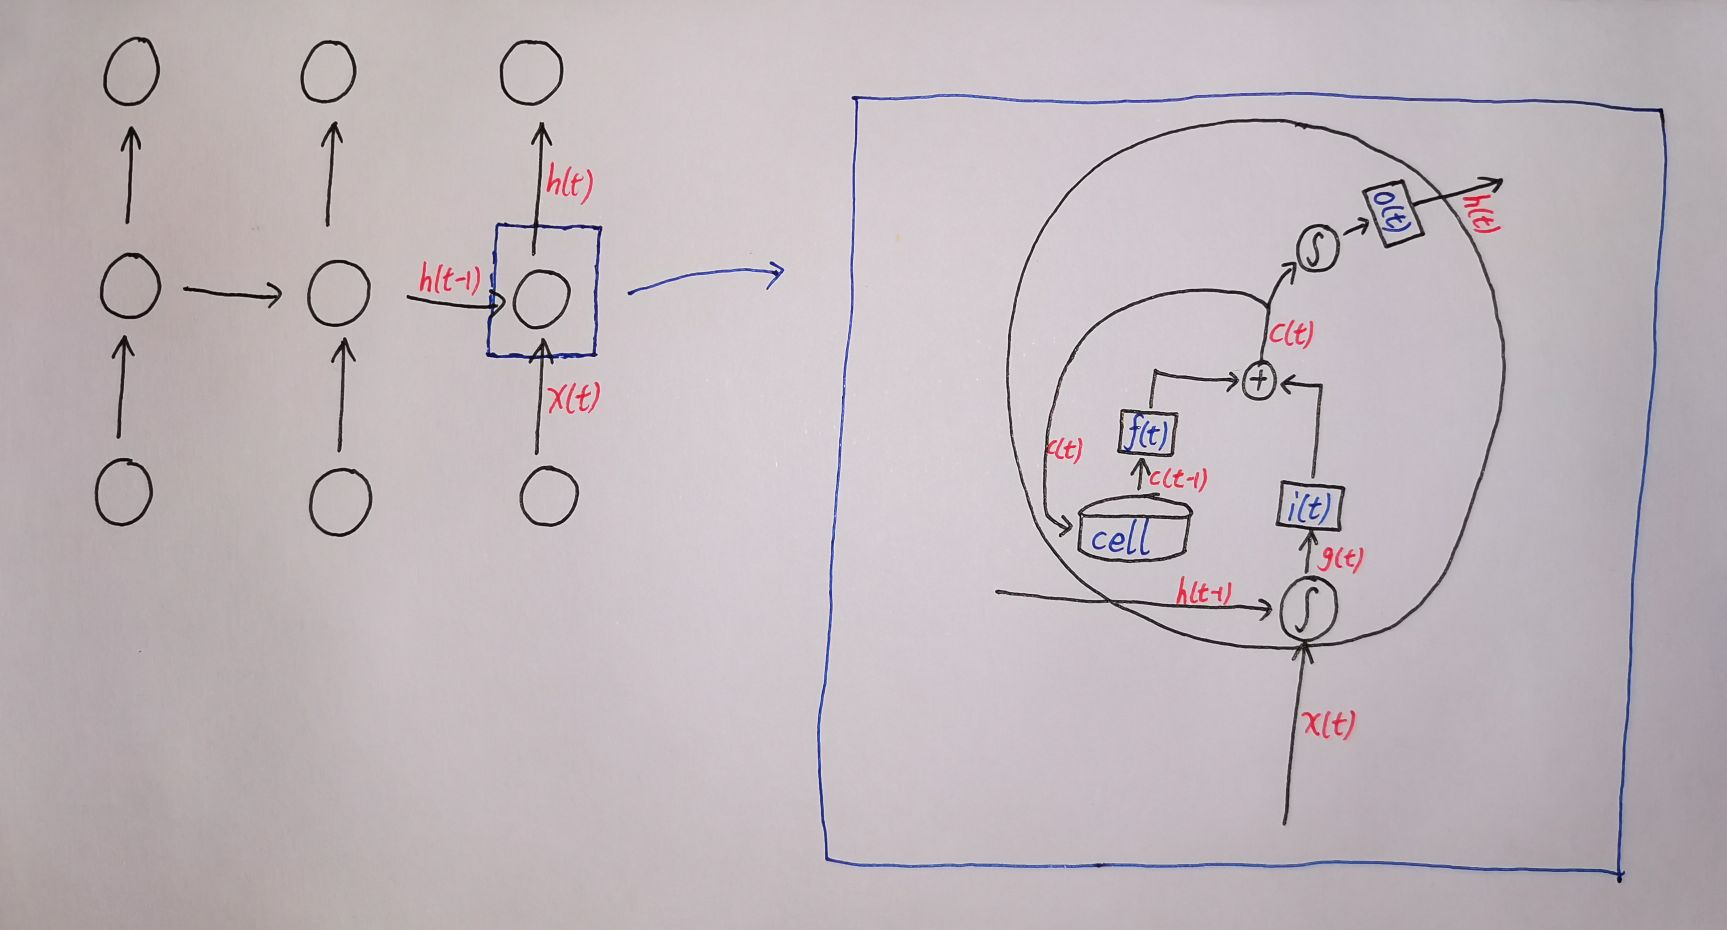 h(t)
h(t-1)
x(t)
o(t)
h(t)
∫
c(t)
+
f(t)
c(t)
c(t-1)
i(t)
cell
g(t)
h(t-1)
∫
x(t)